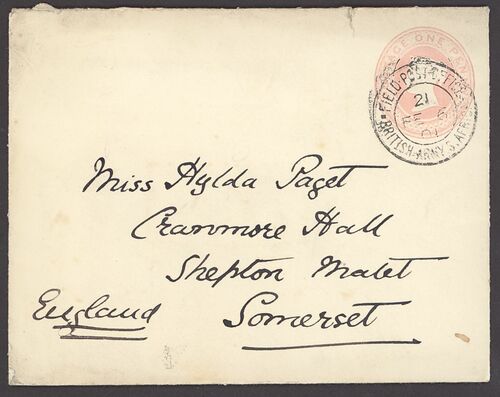 POSTAGE ONE PENNY
FIELD POST OFFICE
21
FE 6
01
BRITISH ARMY S. AFRICA
Miss Hylda Paget
Cranmore Hall
Shepton Malet
England Somerset